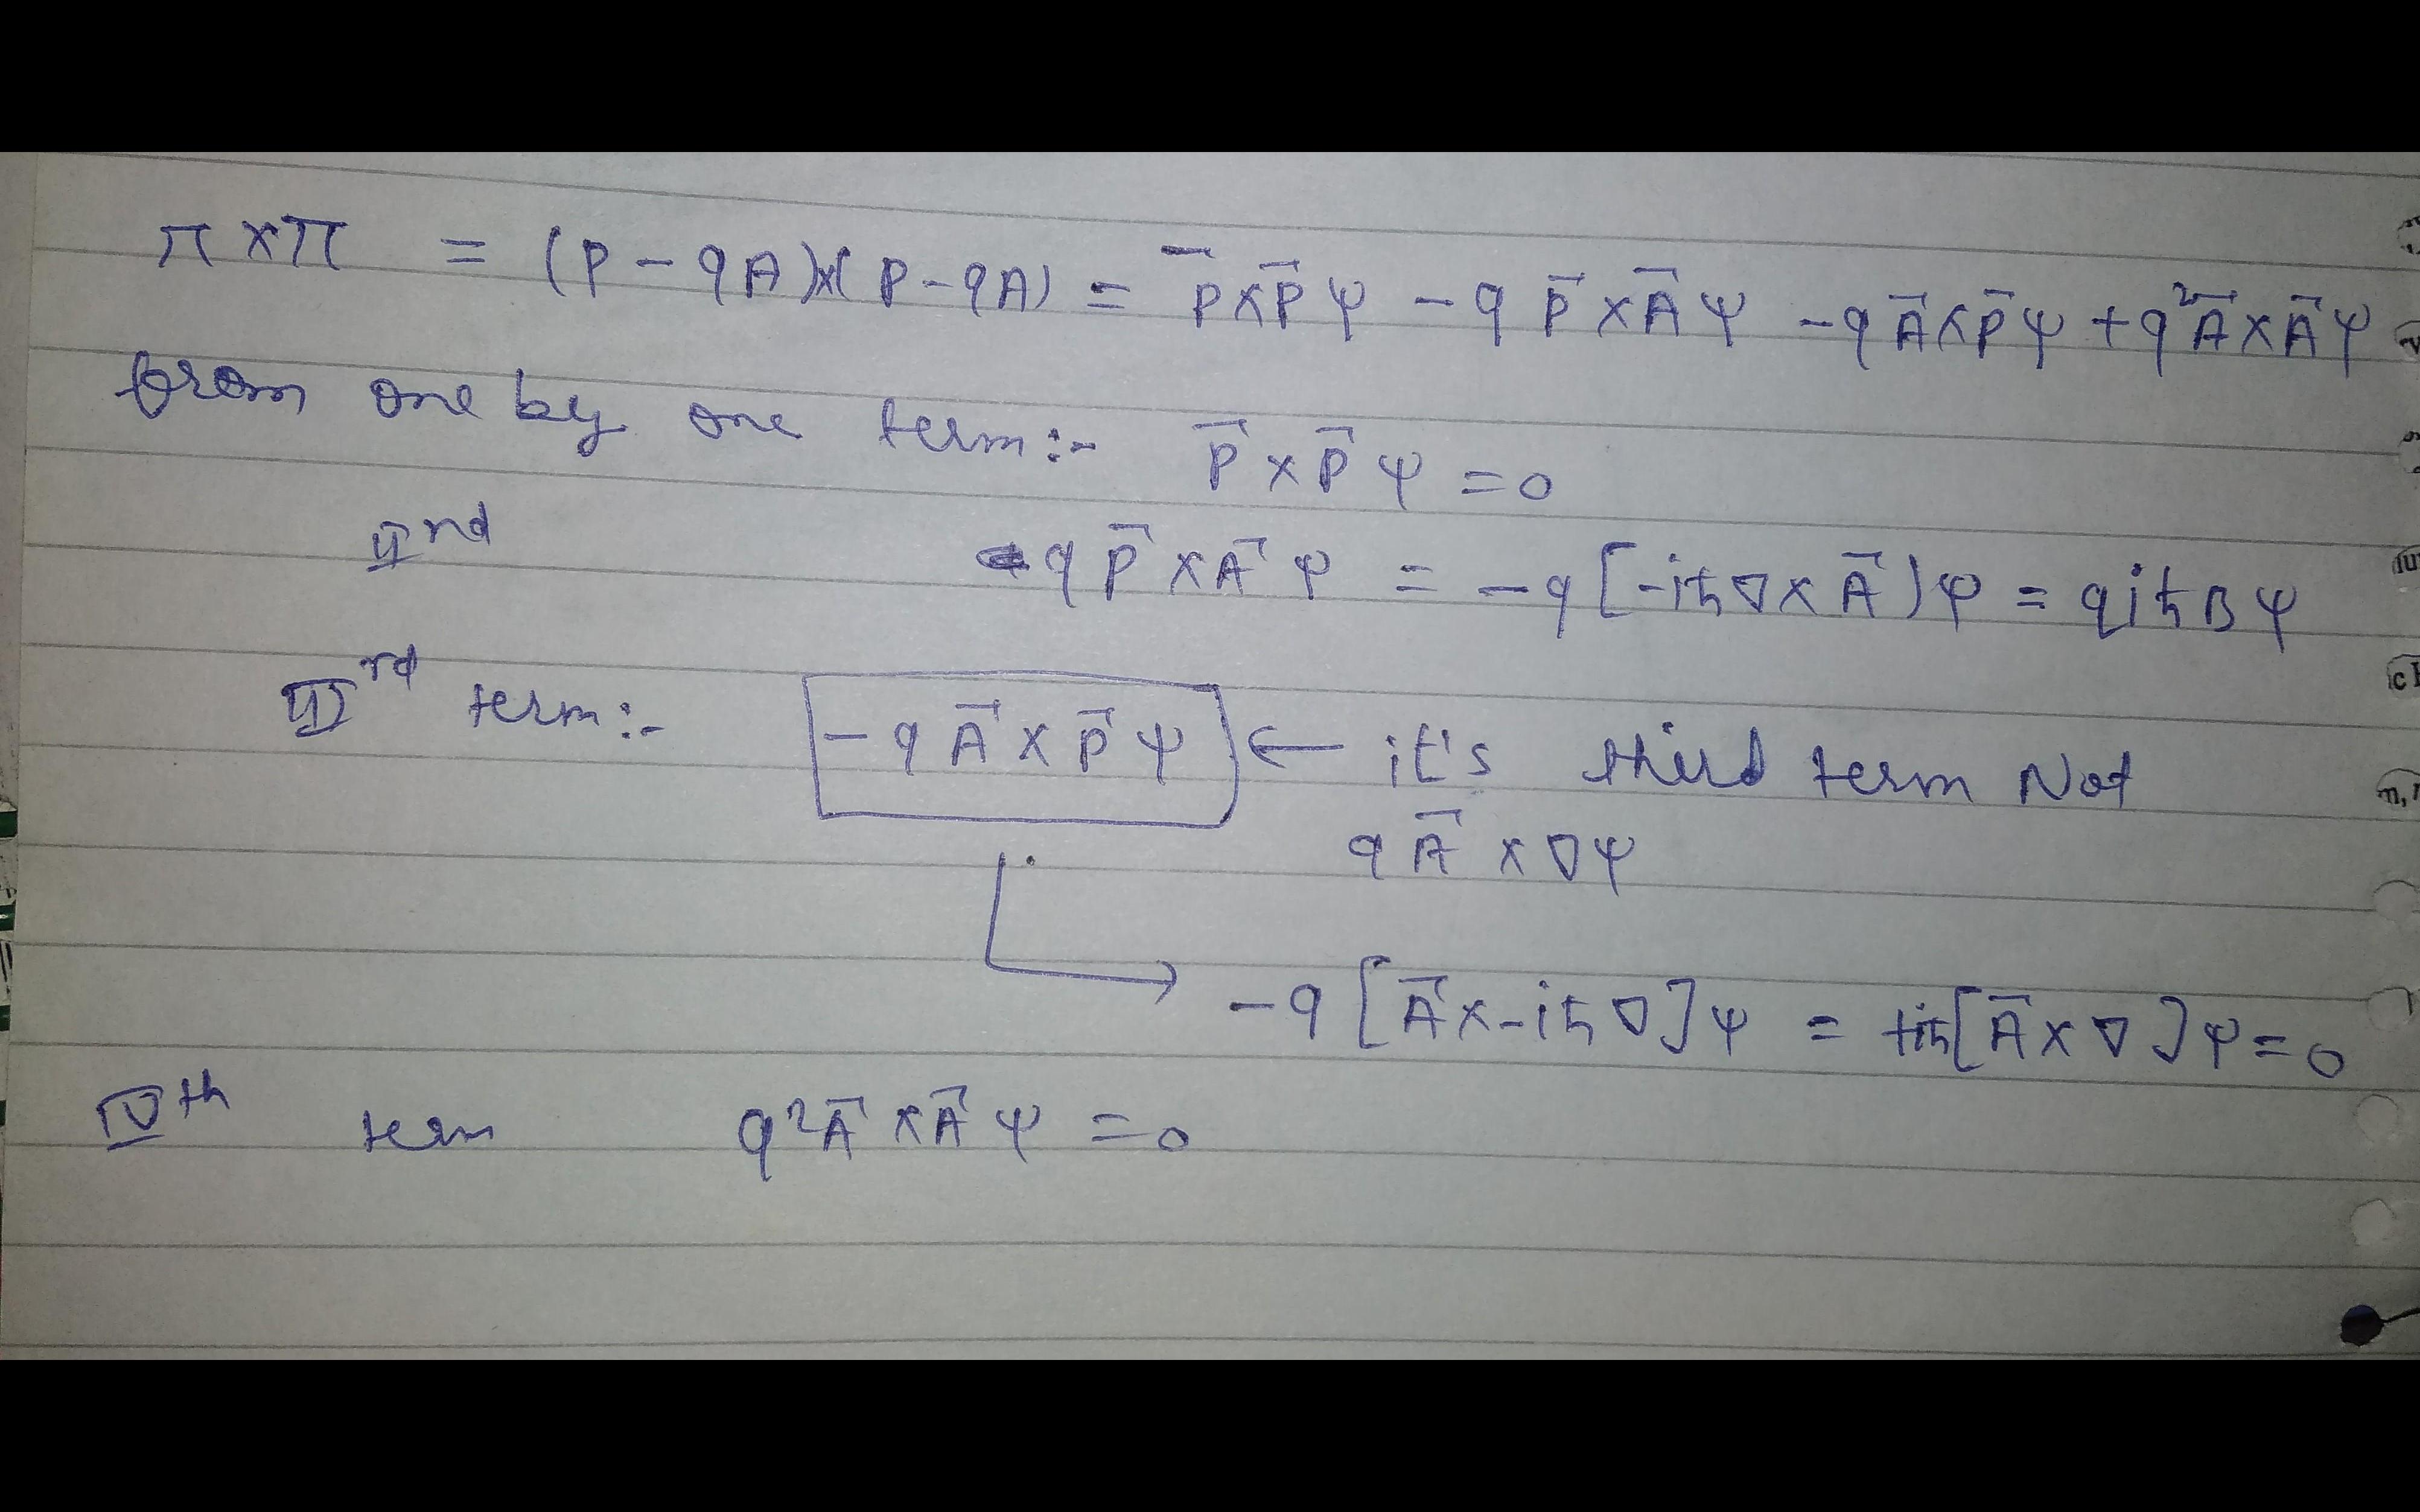 π×π = (P-qA)×(P-qA) = P̄×P̄ψ - q P̄×Āψ - qĀ×P̄ψ + q²Ā×Āψ
from one by one term:- P̄×P̄ψ = 0
IInd -q P̄×Āψ = -q[-iħ∇×Ā)ψ = qiħBψ
IIIrd term:- -qĀ×P̄ψ ← it's third term Not
qĀ×∇ψ
-q[Ā×-iħ∇]ψ = +iħ[Ā×∇]ψ=0
IVth term q²Ā×Āψ = 0